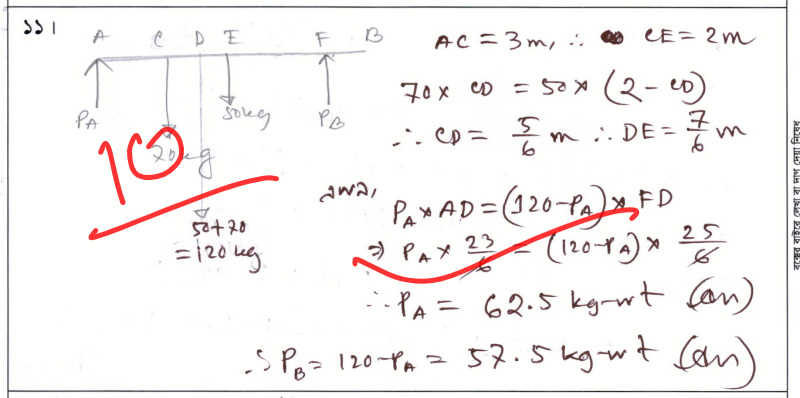 ১১।
A C D E F B
P_A 70kg 50kg P_B
50+70
=120 kg
10
AC = 3m, ∴ CE = 2m
70 × CD = 50 × (2 - CD)
∴ CD = 5/6 m ∴ DE = 7/6 m
এখন, P_A × AD = (120-P_A) × FD
⇒ P_A × 23/6 = (120-P_A) × 25/6
∴ P_A = 62.5 kg-wt (Ans)
∴ P_B = 120-P_A = 57.5 kg-wt (Ans)
বক্সের বাইরে লেখা বা দাগ দেয়া নিষেধ